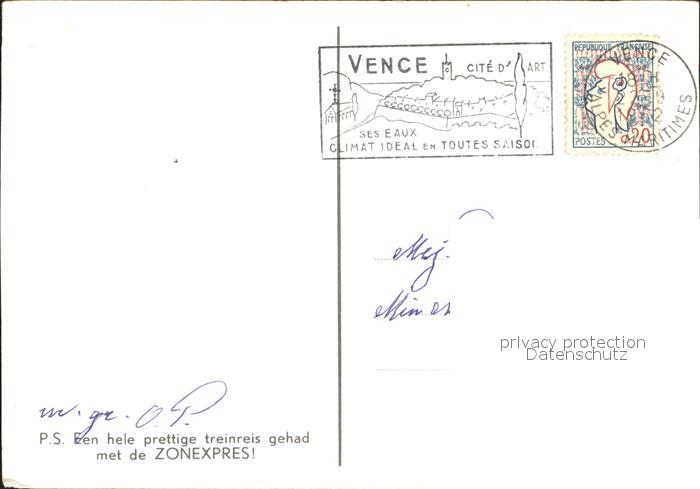 VENCE CITÉ D'ART
SES EAUX
CLIMAT IDEAL EN TOUTES SAISON
REPUBLIQUE FRANÇAISE
0,20
POSTES
VENCE
ALPES MARITIMES
Mej.
Min
privacy protection
Datenschutz
m. gr. O.P.
P.S. Een hele prettige treinreis gehad
met de ZONEXPRES!